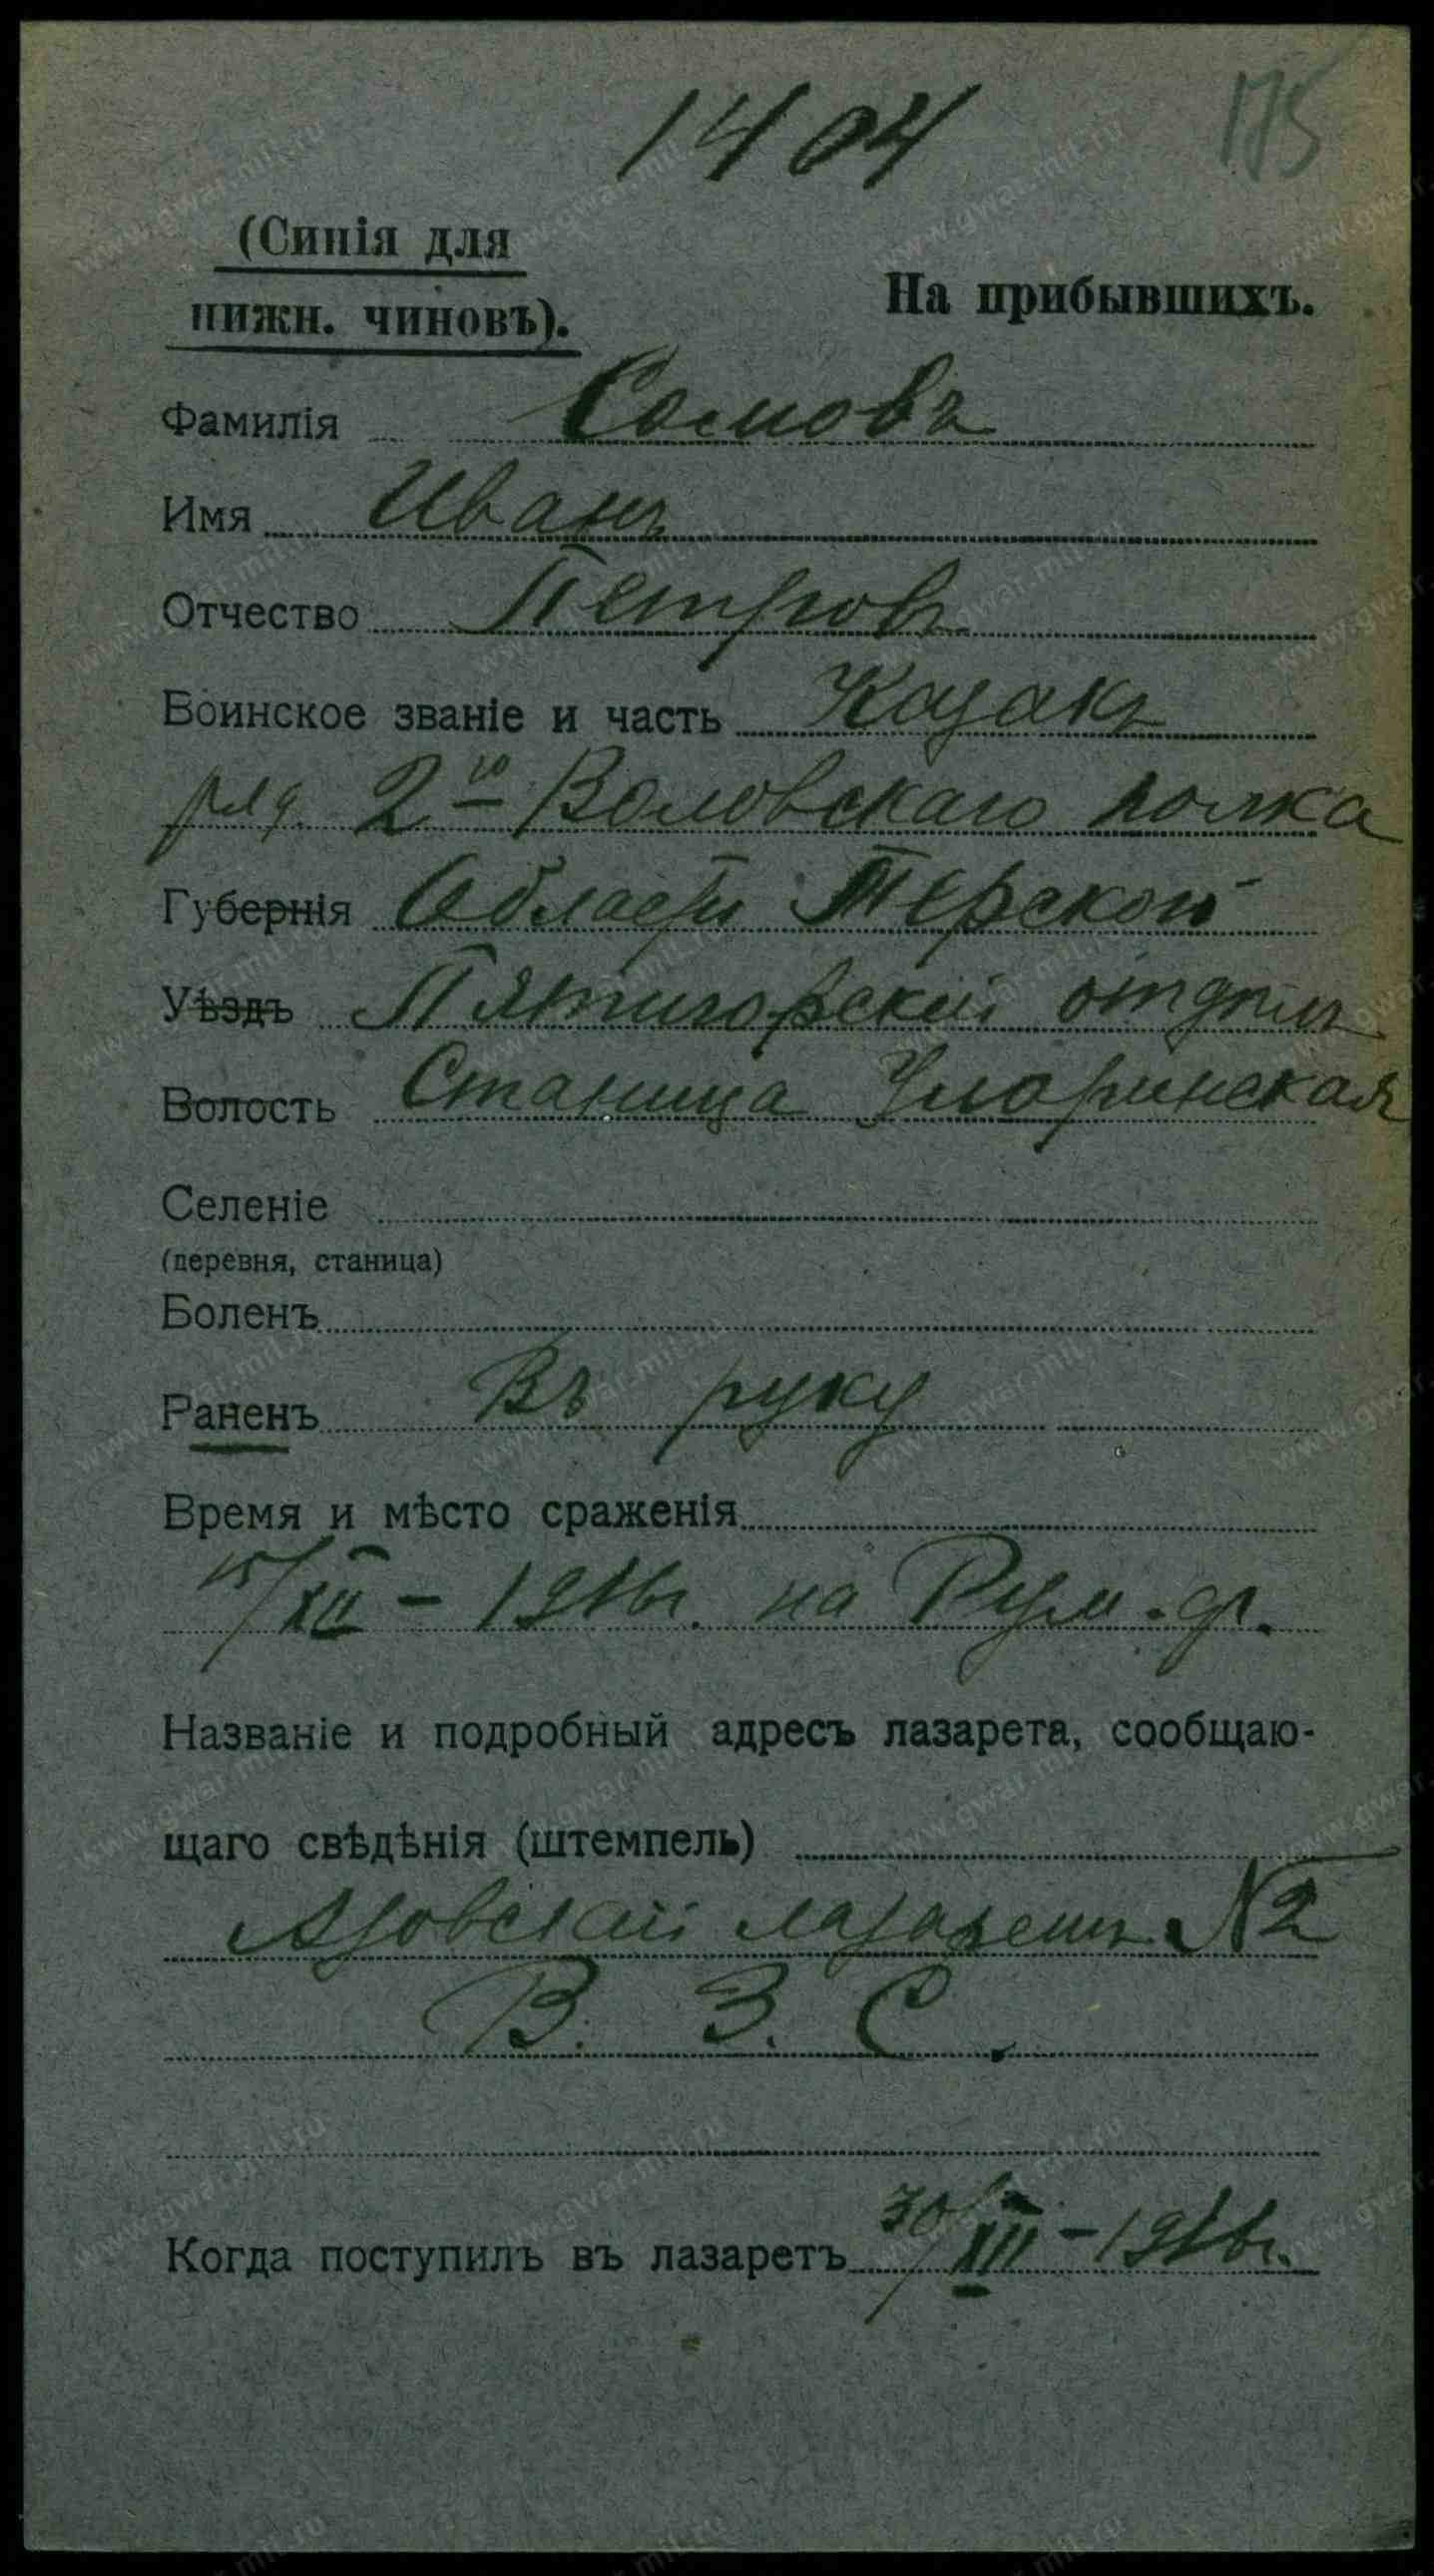 1404
175
(Синія для
нижн. чиновъ).
На прибывшихъ.
Фамилія Сомовъ
Имя Иванъ
Отчество Петровъ
Воинское званіе и часть Казакъ
ряд. 2го Воловскаго полка
Губернія Области Терской
Уѣздъ Пятигорскій отдѣлъ
Волость Станица
Селеніе
(деревня, станица)
Боленъ
Раненъ Въ руку
Время и мѣсто сраженія
15/XII – 1916г. на Рум. фр.
Названіе и подробный адресъ лазарета, сообщаю-
щаго свѣдѣнія (штемпель)
Азовскій лазаретъ №2
В. З. С.
Когда поступилъ въ лазаретъ 30/XII – 1916г.